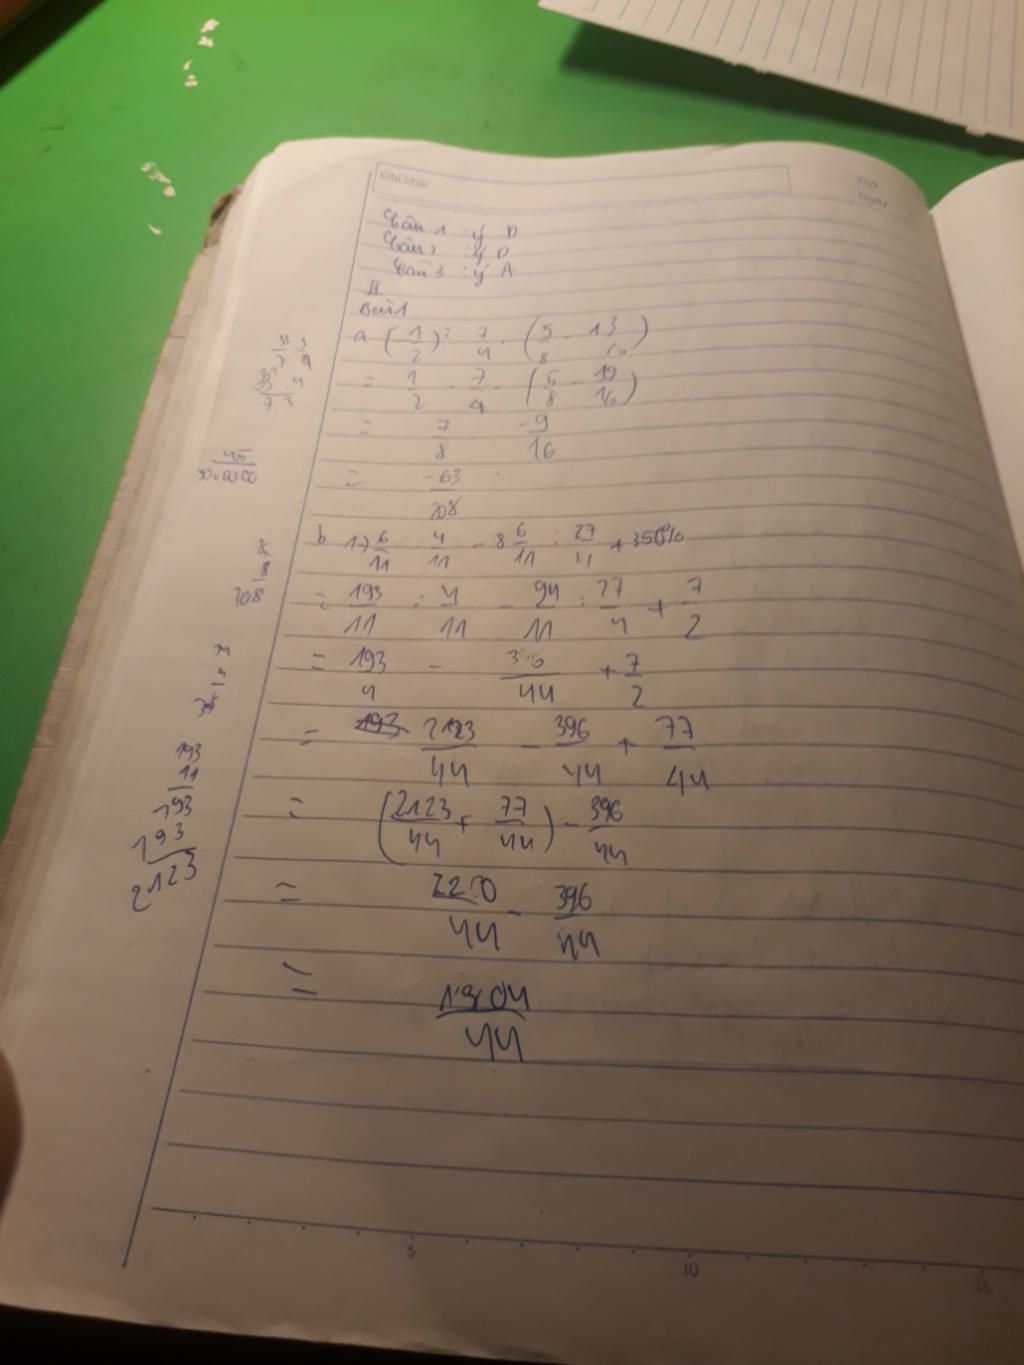 Ghi chú:
Câu 1 : ý D
Câu 2 : ý D
Câu 3 : ý A
II
Bài 1
a (1/2)² · 7/4 · (5/8 - 13/16)
= 1/2 · 7/4 - (5/8 - 19/16)
= 7/8 · -9/16
= -63/208
b 17 6/11 : 4/11 - 8 6/11 : 27/4 + 350%
= 193/11 : 4/11 - 94/11 : 27/4 + 7/2
= 193/4 - 396/44 + 7/2
= 2123/44 - 396/44 + 77/44
= (2123/44 + 77/44) - 396/44
= 2200/44 - 396/44
= 1804/44
193
11
193
193
2123
5 10 15